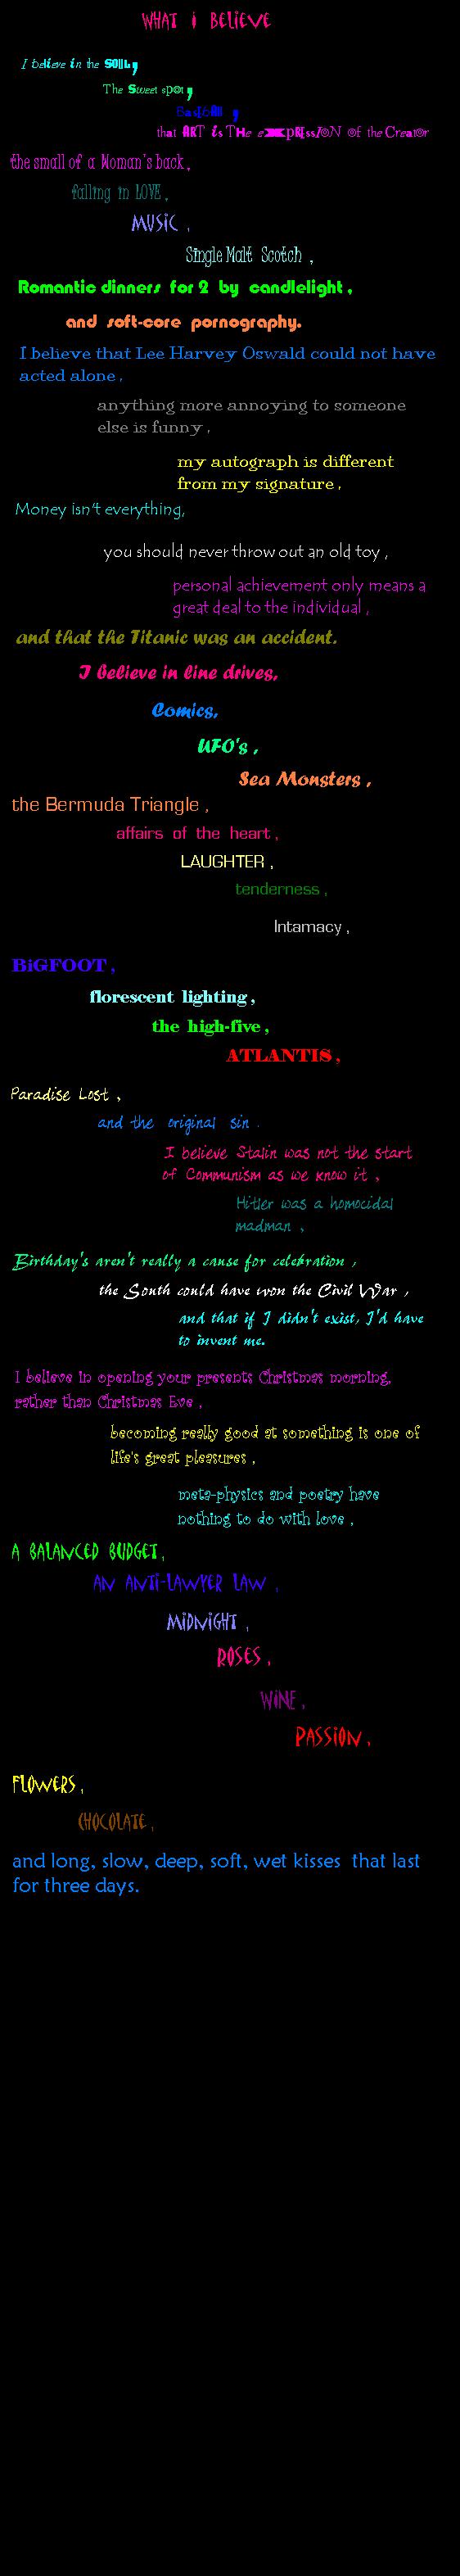 WHAT i BELiEVE
I believe in the SOUL,
The Sweet spot,
BasEbAll ,
that ART is THe exxpREssION of the Creator
the small of a Woman's back ,
falling in LOVE ,
MUSiC ,
Single Malt Scotch ,
Romantic dinners for 2 by candlelight ,
and soft-core pornography.
I believe that Lee Harvey Oswald could not have
acted alone ,
anything more annoying to someone
else is funny ,
my autograph is different
from my signature ,
Money isn't everything,
you should never throw out an old toy ,
personal achievement only means a
great deal to the individual ,
and that the Titanic was an accident.
I believe in line drives,
Comics,
UFO's ,
Sea Monsters ,
the Bermuda Triangle ,
affairs of the heart ,
LAUGHTER ,
tenderness ,
Intamacy ,
BiGFOOT ,
florescent lighting ,
the high-five ,
ATLANTIS ,
Paradise Lost ,
and the original sin .
I believe Stalin was not the start
of Communism as we know it ,
Hitler was a homocidal
madman ,
Birthday's aren't really a cause for celebration ,
the South could have won the Civil War ,
and that if I didn't exist, I'd have
to invent me.
I believe in opening your presents Christmas morning,
rather than Christmas Eve ,
becoming really good at something is one of
life's great pleasures ,
meta-physics and poetry have
nothing to do with love ,
A BALANCED BUDGET ,
AN ANTi-LAWYER LAW ,
MiDNiGHT ,
ROSES ,
WiNE ,
PASSiON ,
FLOWERS ,
CHOCOLATE ,
and long, slow, deep, soft, wet kisses that last
for three days.